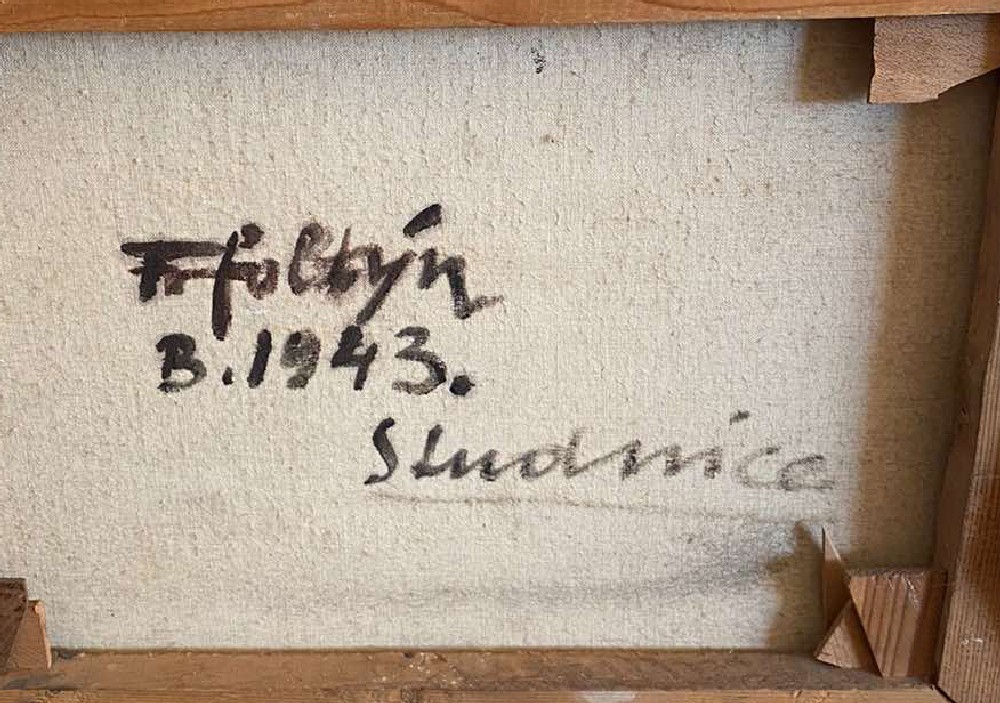 Fr Foltýn
B. 1943.
Studnice